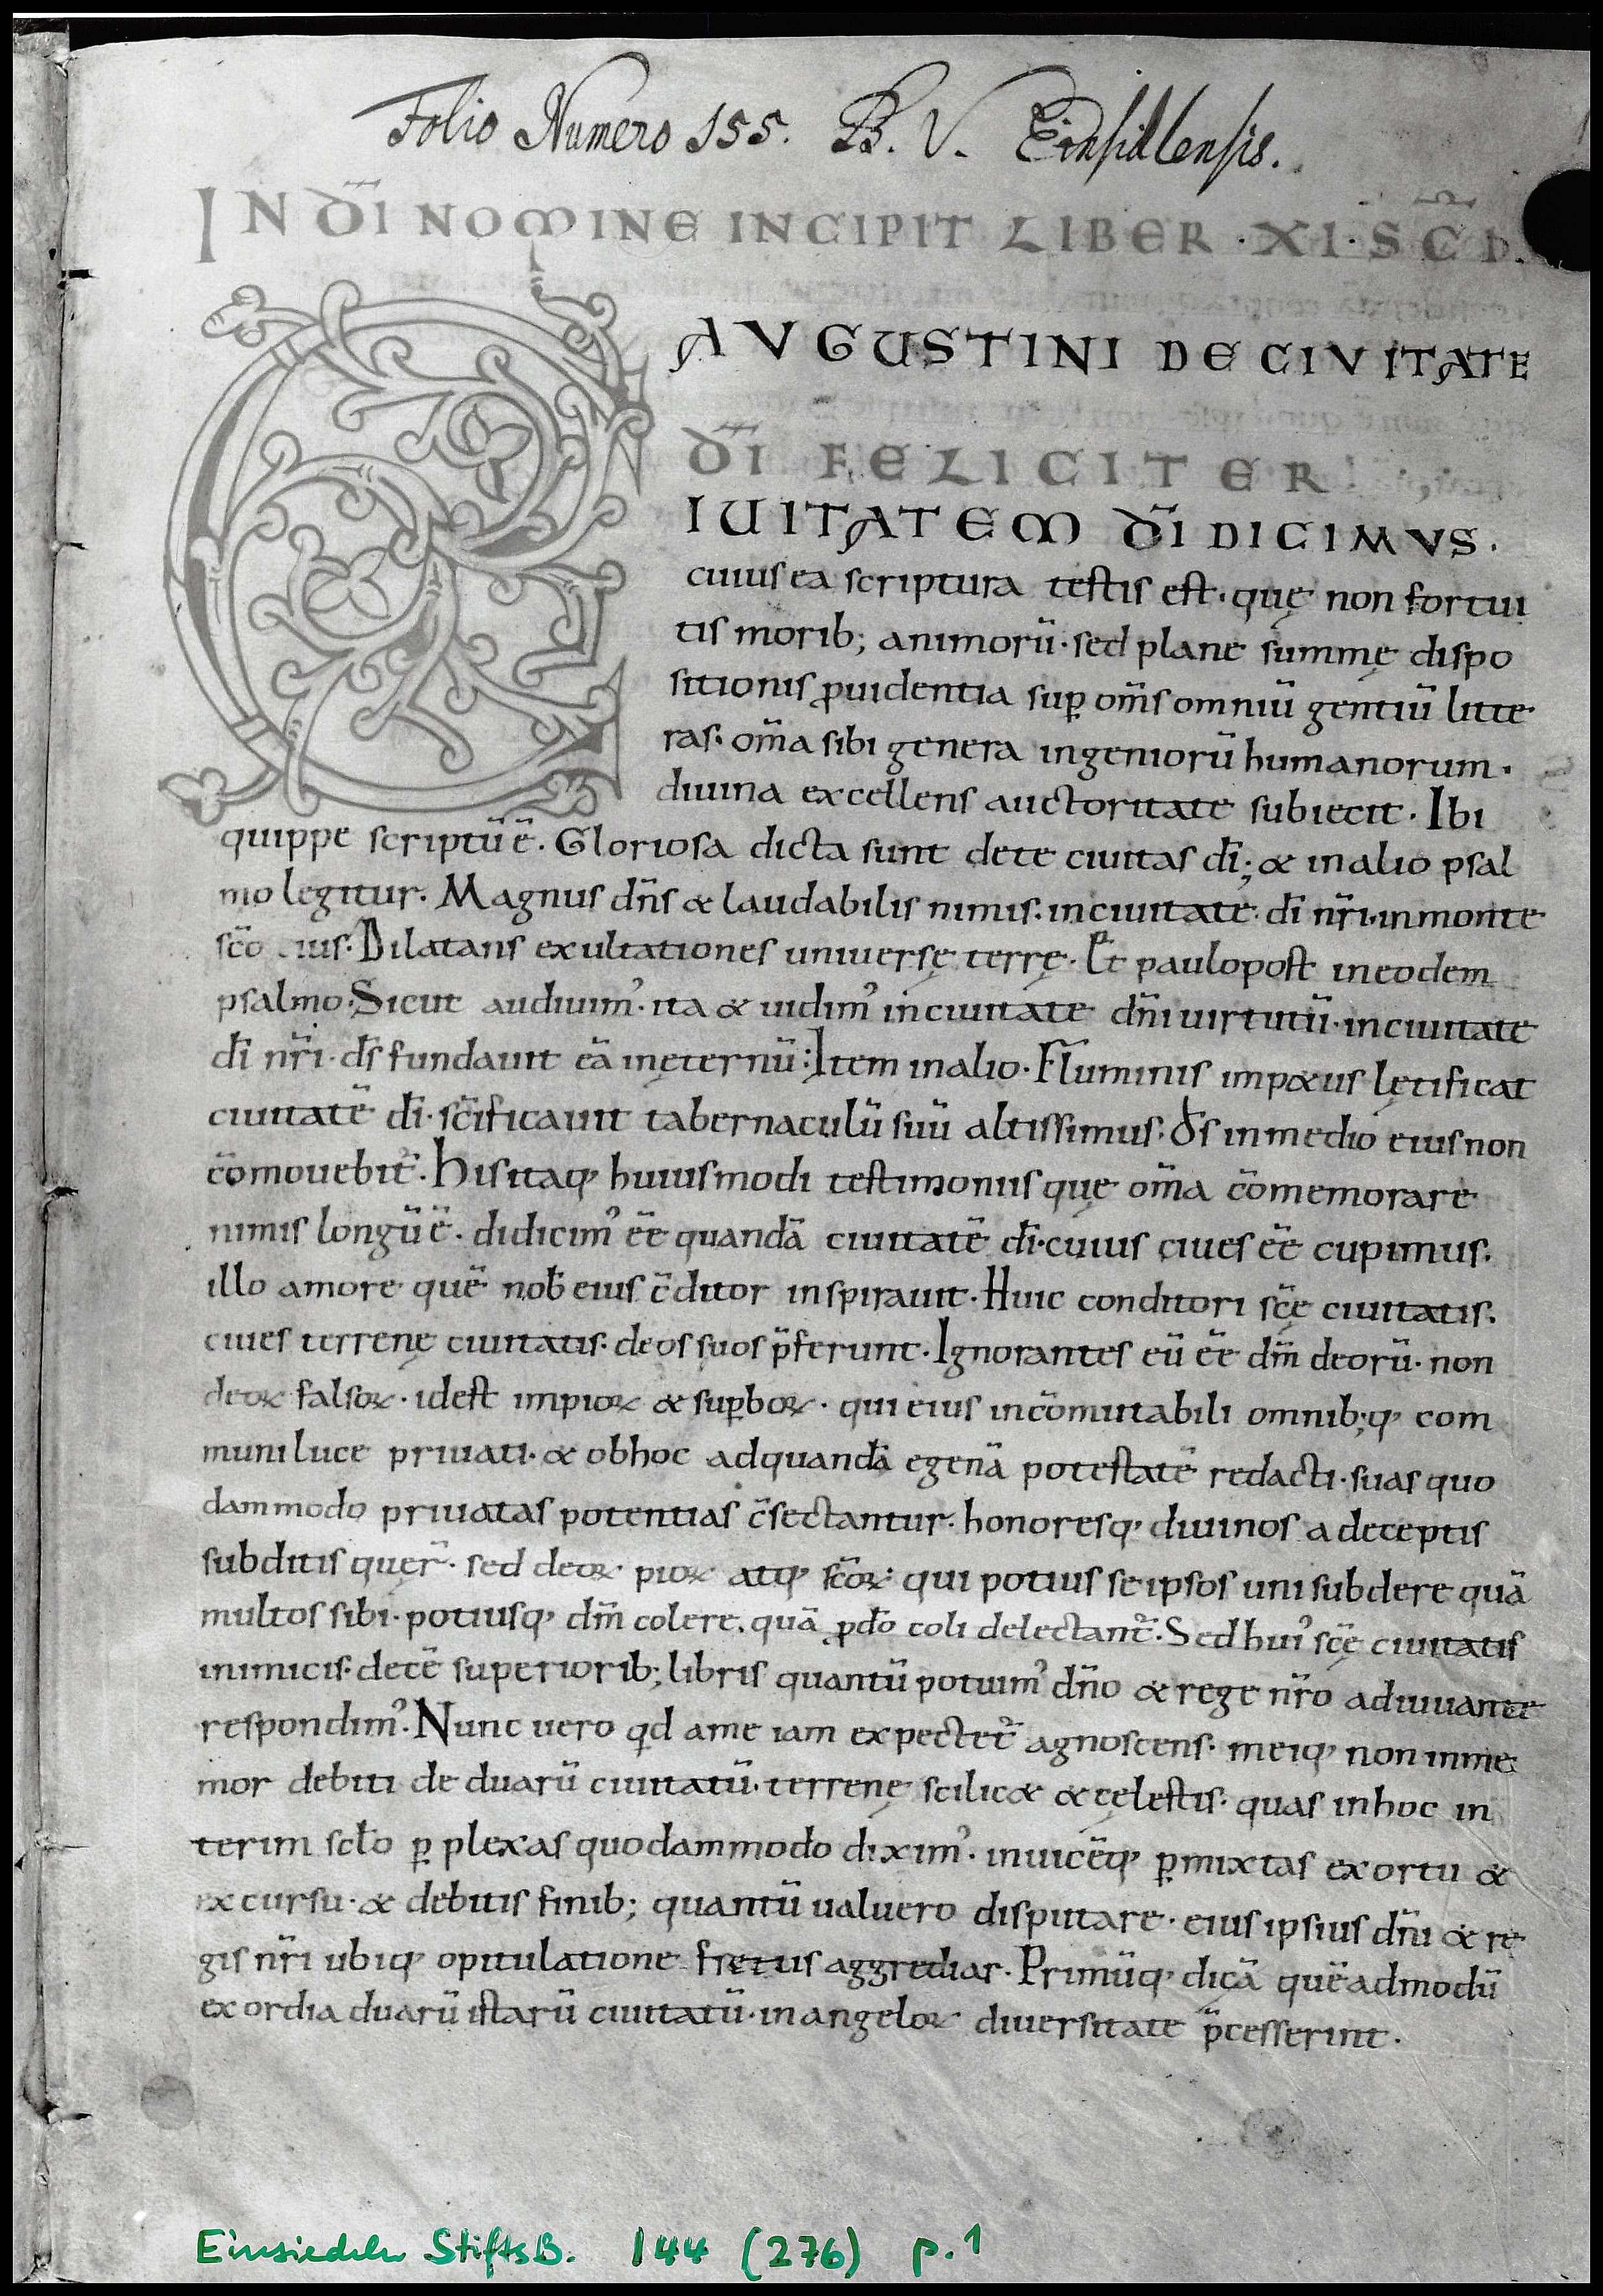 Folio Numero 155. B. V. Einsidlensis.
IN D̅I NOMINE INCIPIT LIBER · XI · SC̅I
AVGUSTINI DE CIVITATE
D̅I FELICITER
CIUITATEM D̅I DICIMVS.
cuius ea scriptura testis est · quę non fortui
tis morib; animorū · sed plane summę dispo
sitionis ꝓuidentia suꝑ om̅s omniū gentiū litte
ras · om̅a sibi genera ingeniorū humanorum ·
diuina excellens auctoritate subiecit · Ibi
quippe scriptū ē · Gloriosa dicta sunt dete ciuitas dī; & inalio psal
mo legitur · Magnus dn̅s & laudabilis nimis · inciuitate dī nr̅i · inmonte
sc̅o eius · Dilatans exultationes uniuersę terrę · Et paulopost ineodem
psalmo · Sicut audiuimꝰ · ita & uidimꝰ inciuitate dn̅i uirtutū · inciuitate
dī nr̅i · ds̅ fundauit eā inęternū : Item inalio · Fluminis imp&us lętificat
ciuitatē dī · sc̅ificauit tabernaculū suū altissimus · ds̅ inmedio eius non
c̅omouebit̅ · His itaq; huiusmodi testimoniis quę om̅a c̅omemorare
nimis longū ē · didicimꝰ ēē quandā ciuitatē dī · cuius ciues ēē cupimus ·
illo amore quē nob̅ eius c̅ditor inspirauit · Huic conditori sc̅ę ciuitatis ·
ciues terrenę ciuitatis · deos suos p̅ferunt · Ignorantes eū ēē dm̅ deorū · non
deoꝝ falsoꝝ · idest impioꝝ & suꝑboꝝ · qui eius inc̅omutabili omnib;q; com
muni luce priuati · & obhoc adquandā egenā potestatē redacti · suas quo
dammodo priuatas potentias c̅sectantur · honoresq; diuinos adeceptis
subditis quęr̅ · sed deoꝝ pioꝝ atq; sc̅oꝝ qui potius seipsos uni subdere quā
multos sibi · potiusq; dm̅ colere · quā ꝓdo̅ coli delectant̅ · Sed huiꝰ sc̅ę ciuitatis
inimicis · decē superiorib; libris quantū potuimꝰ dn̅o & rege nr̅o adiuuante
respondimꝰ · Nunc uero qd̅ ame iam expectet̅ agnoscens · meiq; non inme
mor debiti de duarū ciuitatū · terrenę scilic& & cęlestis · quas inhoc in
terim sclo̅ ꝑplexas quodammodo diximꝰ · inuicēq; ꝑmixtas exortu &
excursu · & debitis finib; quantū ualuero disputare · eius ipsius dn̅i & re
gis nr̅i ubiq; opitulatione fretus aggrediar · Primūq; dicā quēadmodū
exordia duarū istarū ciuitatū · inangeloꝝ diuersitate p̅cesserint ·
Einsiedeln StiftsB. 144 (276) p. 1